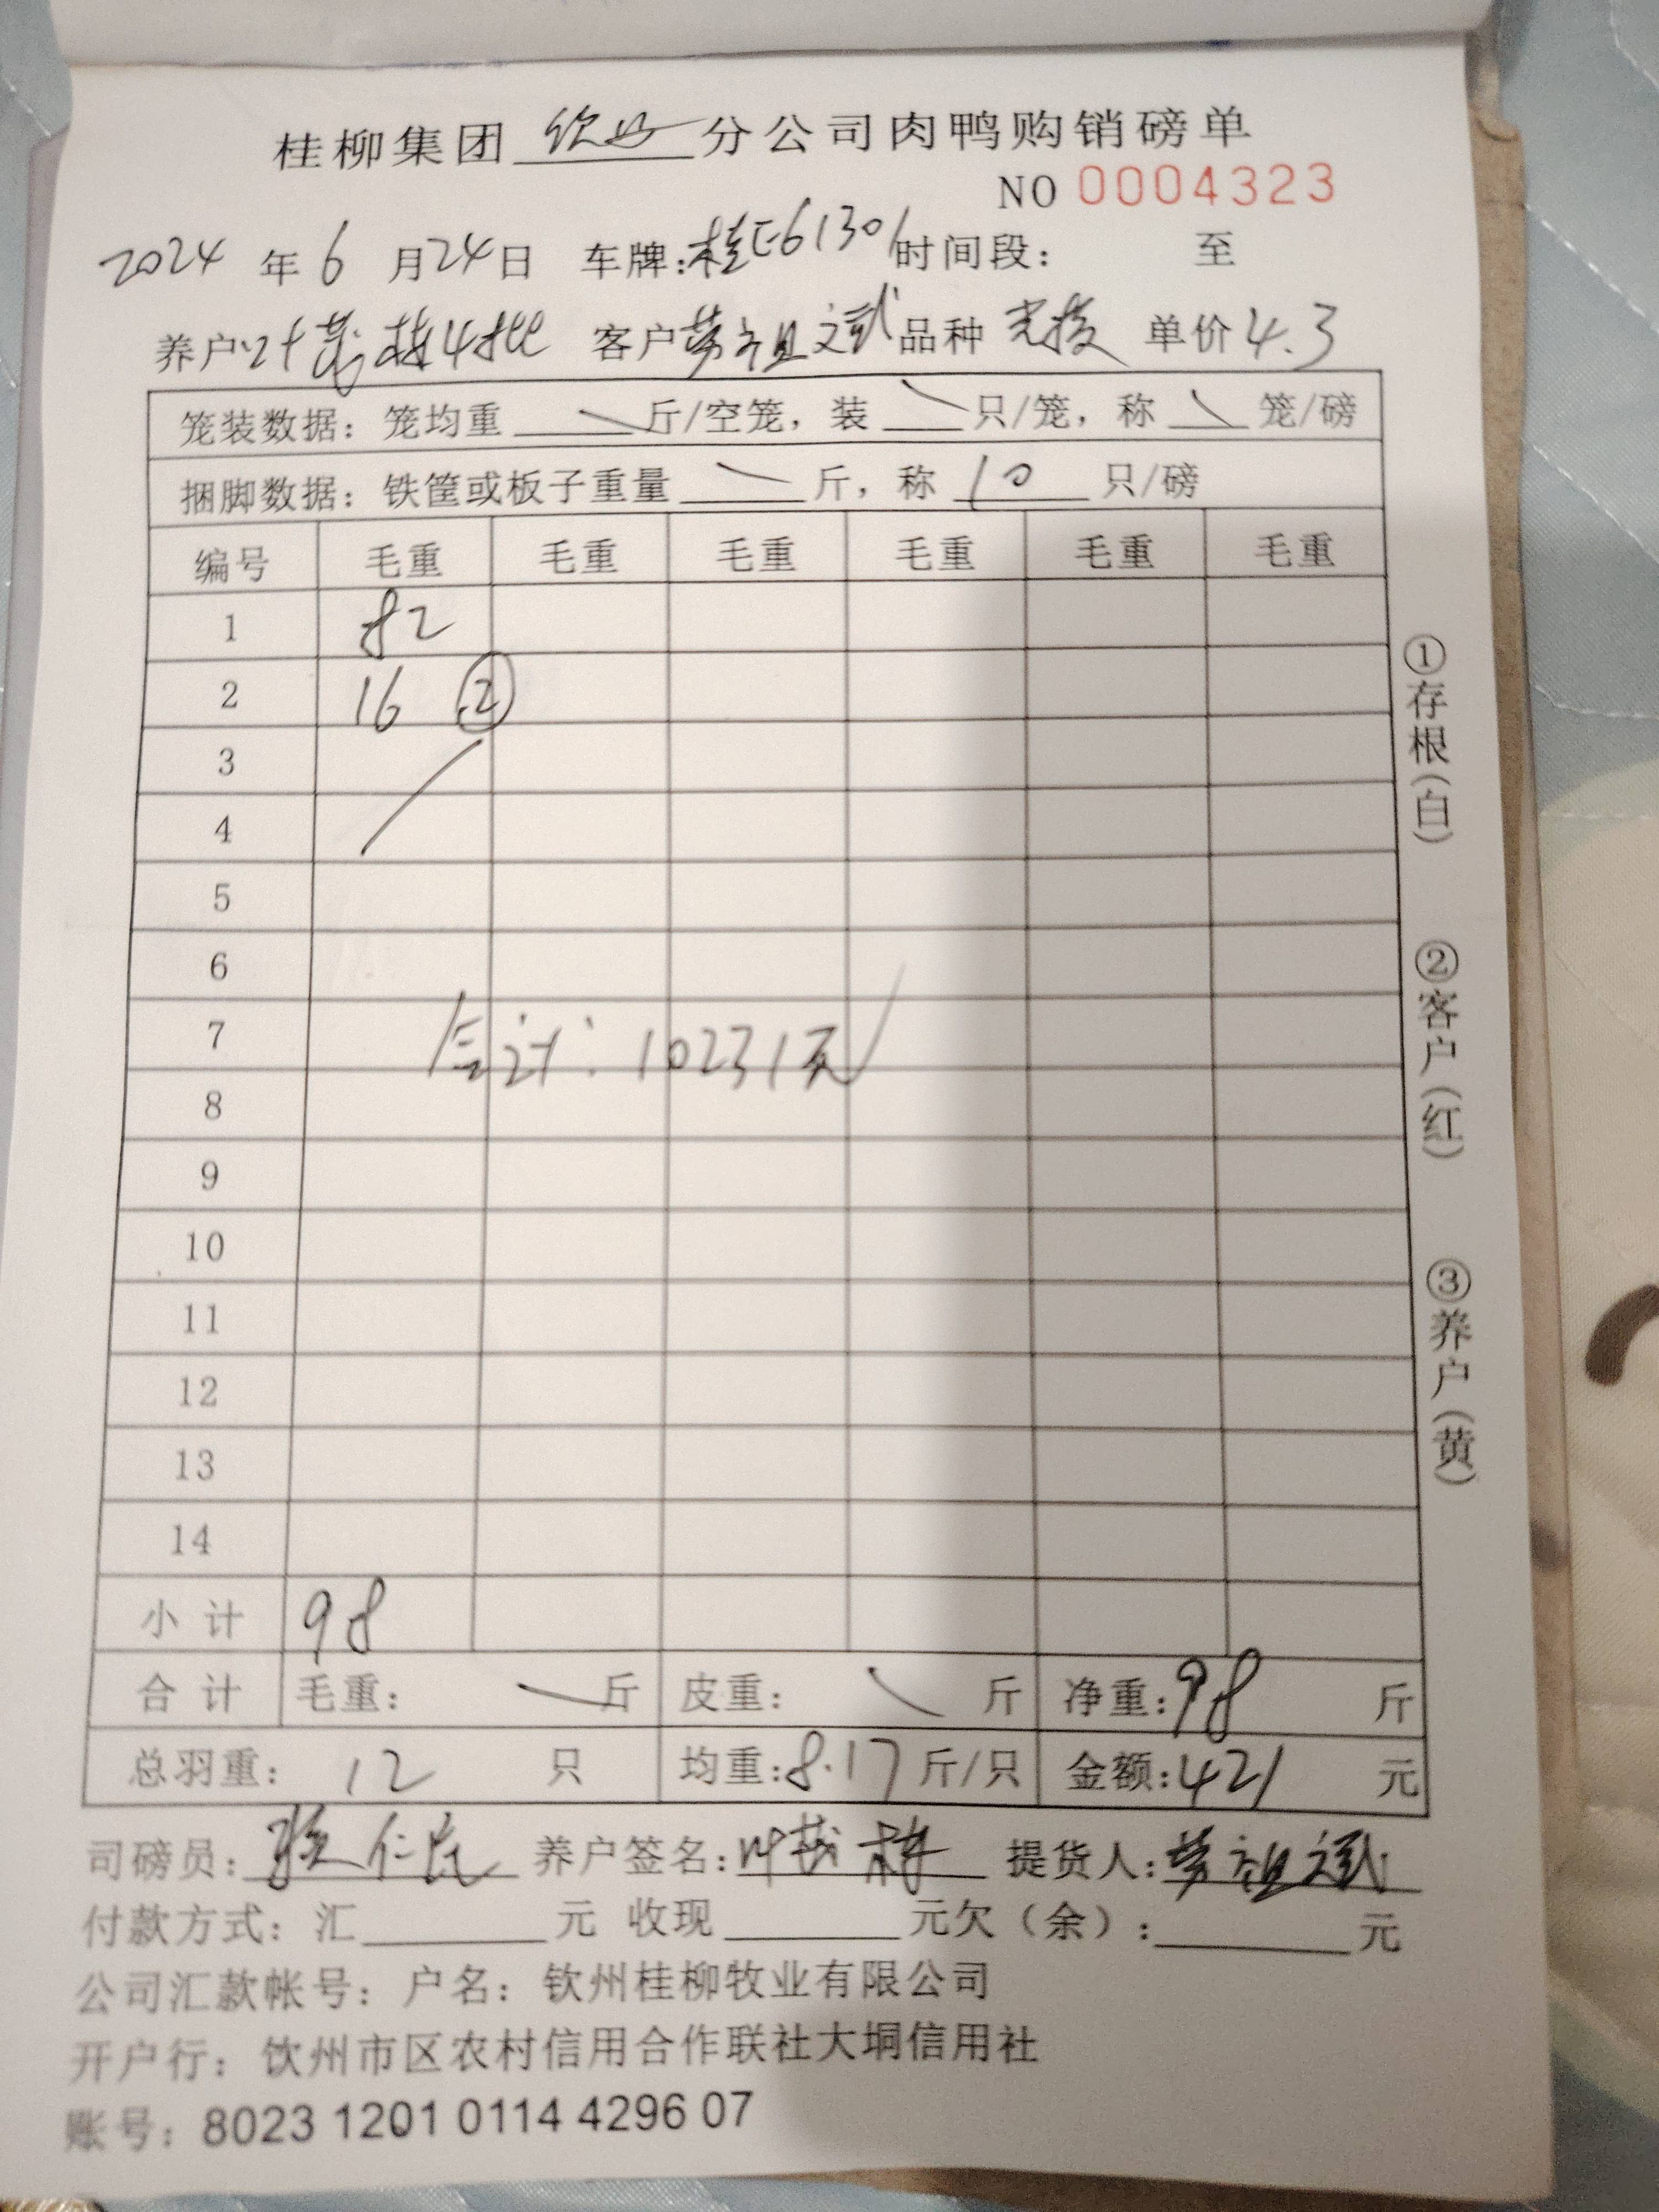 桂柳集团 钦州 分公司肉鸭购销磅单
NO 0004323
2024 年 6 月 24 日 车牌:桂E61301 时间段: 至
养户:叶茂栋4批 客户 劳祖斌 品种 单价 4.3
笼装数据: 笼均重 斤/空笼, 装 只/笼, 称 笼/磅
捆脚数据: 铁筐或板子重量 斤, 称 10 只/磅
编号 毛重 毛重 毛重 毛重 毛重 毛重
1 82
2 16 ②
3
4
5
6
7 合计: 10231元
8
9
10
11
12
13
14
小计 98
合计 毛重: 斤 皮重: 斤 净重: 98 斤
总羽重: 12 只 均重: 8.17 斤/只 金额: 421 元
司磅员: 养户签名: 叶茂栋 提货人: 劳祖斌
付款方式: 汇 元 收现 元欠(余): 元
公司汇款帐号: 户名: 钦州桂柳牧业有限公司
开户行: 饮州市区农村信用合作联社大垌信用社
账号: 8023 1201 0114 4296 07
①存根(白)
②客户(红)
③养户(黄)